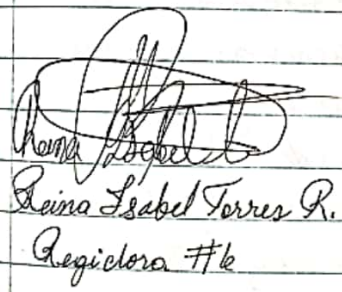 Reina Isabel
Reina Isabel Torres R.
Regidora #6